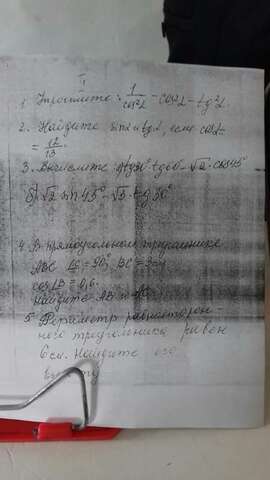 I
1. Упростите: 1/cos²α - cos²α - tg²α.
2. Найдите sinα и tgα, если cosα =
= 12/13.
3. Вычислите tg60° - √2·cos45°
б) √2 sin 45° - √3 tg 30°
4. В прямоугольном треугольнике
ABC 90°, BC = 3см
cos B = 0,6.
Найдите AB и AC
5. Периметр равносторон-
него треугольника равен
6 см. Найдите его
высоту